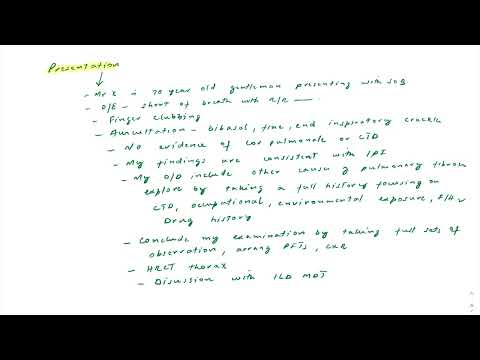 Presentation
- Mr X is 70 year old gentleman presenting with SOB
- O/E - short of breath with R/R
- Finger clubbing
- Auscultation - bibasal, fine, end inspiratory crackle
- No evidence of cor pulmonale or CTD
- My findings are consistent with
- My D/D include other causes of pulmonary fibrosis
explore by taking a full history focusing on
CTD, occupational, environmental exposure, F/H,
Drug history
- Conclude my examination by taking full sets of
observation, arrang PFTs, CXR
- HRCT thorax
- Discussion with ILD MDT